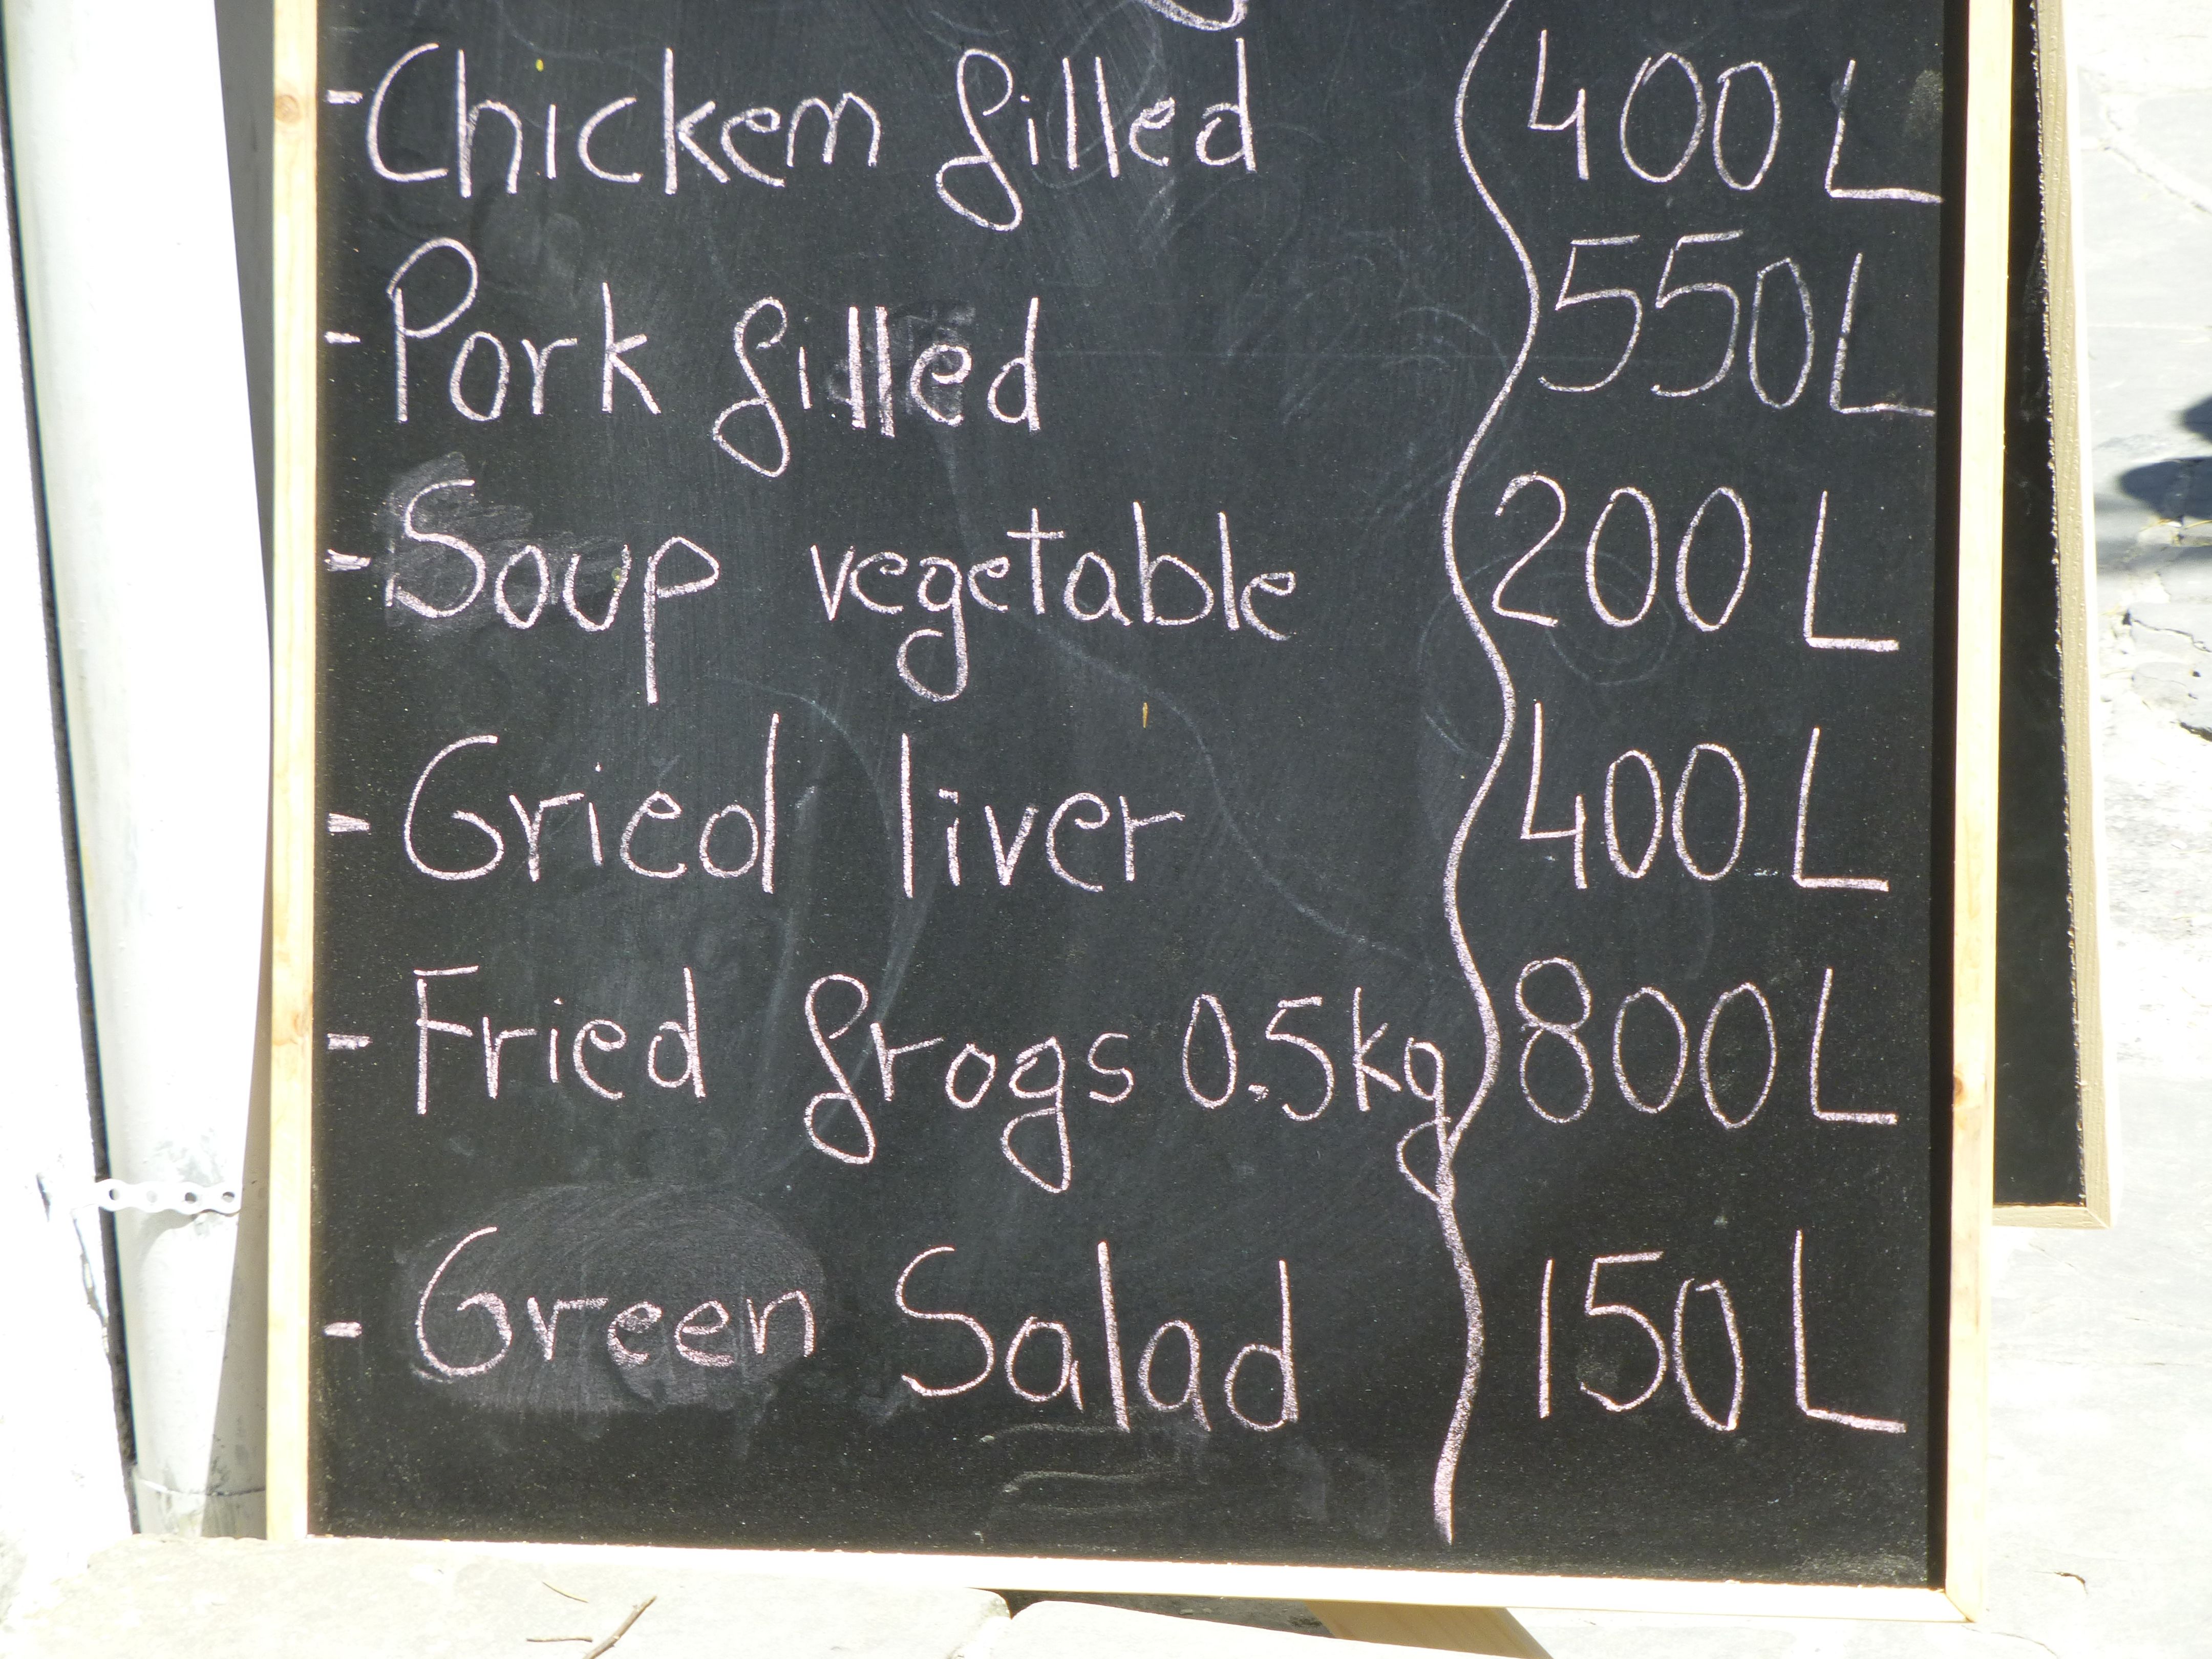 - Chickem filled 400 L
- Pork filled 550L
- Soup vegetable 200 L
- Gried liver 400 L
- Fried frogs 0.5kg 800L
- Green Salad 150 L